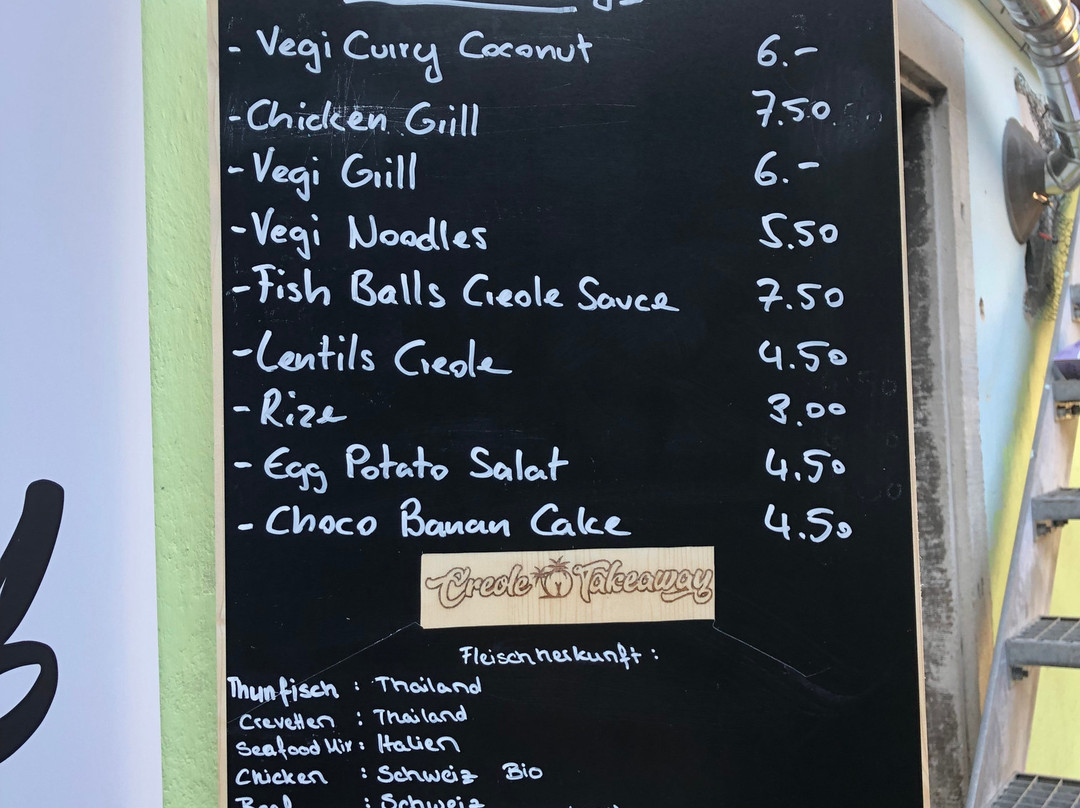 - Vegi Curry Coconut 6.-
- Chicken Grill 7.50
- Vegi Grill 6.-
- Vegi Noodles 5.50
- Fish Balls Creole Sauce 7.50
- Lentils Creole 4.50
- Rize 3.00
- Egg Potato Salat 4.50
- Choco Banan Cake 4.50
Creole Takeaway
Fleischherkunft :
Thunfisch : Thailand
Crevetten : Thailand
Seafood Mix : Italien
Chicken : Schweiz Bio
: Schweiz